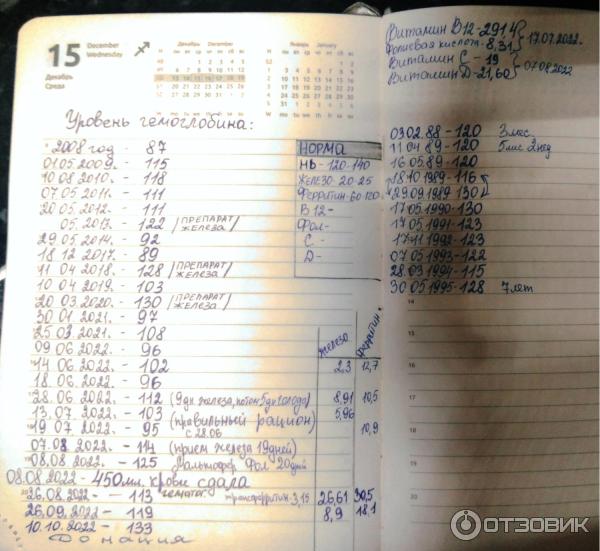 15 December
Wednesday
Декабрь
Среда
Декабрь December
Январь January
Уровень гемоглобина:
* 2008 год - 87
01.05 2009. - 115
10 08 2010. - 118
07 05 2011. - 111
20 05 2012. - 111
05. 2013. - 122 /ПРЕПАРАТ ЖЕЛЕЗА/
29.05 2014. - 92
18 12 2017. - 89
11 04 2018. - 128 /ПРЕПАРАТ ЖЕЛЕЗА/
10 04 2019. - 103
20 03 2020. - 130 /ПРЕПАРАТ ЖЕЛЕЗА/
30 01 2021. - 97
25 03 2021. - 108
09 06 2022. - 96
14 06 2022. - 102 2,3 12,7
18 06 2022. - 96
28.06 2022. - 112 (9 дн. железа, потом 5 дн голода) 8,91 10,5
13.07 2022. - 103 (правильный рацион) 5,96
19 07 2022. - 95 с 28.06 10,9
07.08 2022. - 114 (прием железа 19 дней)
08.08 2022. - 125 Мальтофер Фол 20 дней
08.08 2022 - 450 мл. крови сдала
26.08.2022 - 113 гематоген трансферритин-3,15 26,61 30,5
26.09.2022 - 119 8,9 18.1
10.10.2022 - 133
Донация
НОРМА
Hb - 120-140
ЖЕЛЕЗО 20-25
Ферритин-60 120
B 12 -
Фол -
C -
D -
железо
ферритин
Витамин В12-291,4
Фолиевая кислота-8,31 } 17.07.2022.
Витамин С - 19
Витамин D-21,60 } 07.08.2022
03 02. 88 - 120 3 мес.
11 04 89 - 120
16 05.89 - 120
18 10 1989 - 116
29.09.1989 130
17 05 1990 - 130
17 05 1991 - 123
17 11 1992 - 123
07 05 1993 - 122
28.03 1994 - 115
30 05 1995 - 128 7 лет
14
15
16
17
18
20
ОТЗОВИК